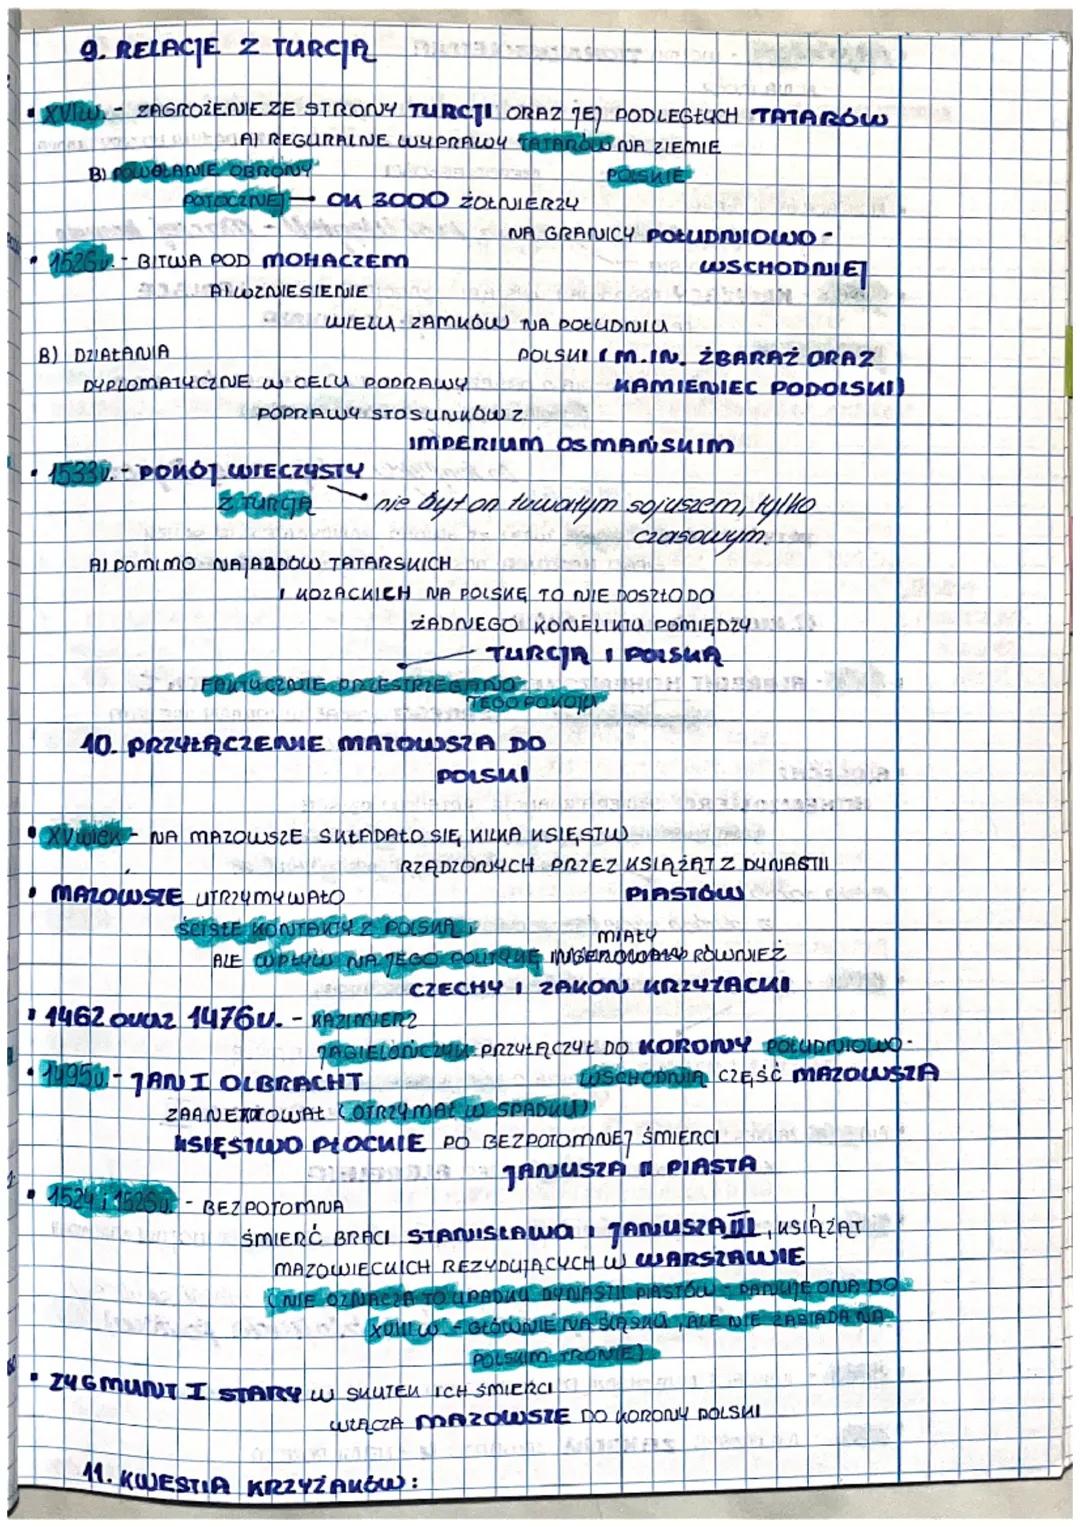 9. RELACJE Z TURCJĄ
• XVI w. - ZAGROŻENIE ZE STRONY TURCJI ORAZ JEJ PODLEGŁYCH TATARÓW
A) REGURALNE WYPRAWY TATARÓW NA ZIEMIE
POLSKIE
B) POWOŁANIE OBRONY
POTOCZNEJ → OK 3000 ŻOŁNIERZY
NA GRANICY POŁUDNIOWO-
WSCHODNIEJ
• 1526r. - BITWA POD MOHACZEM
A) WZNIESIENIE
WIELU ZAMKÓW NA POŁUDNIU
POLSKI (M.IN. ŻBARAŻ ORAZ
KAMIENIEC PODOLSKI)
B) DZIAŁANIA
DYPLOMATYCZNE W CELU POPRAWY
POPRAWY STOSUNKÓW Z
IMPERIUM OSMAŃSKIM
• 1533r. - POKÓJ WIECZYSTY
Z TURCJĄ → nie był on trwałym sojuszem, tylko
czasowym.
A) POMIMO NAJAZDÓW TATARSKICH
I KOZACKICH NA POLSKĘ TO NIE DOSZŁO DO
ŻADNEGO KONFLIKTU POMIĘDZY
TURCJĄ I POLSKĄ
FAKTYCZNIE PRZESTRZEGANO
TEGO POKOJU
10. PRZYŁĄCZENIE MAZOWSZA DO
POLSKI
• XV wiek - NA MAZOWSZE SKŁADAŁO SIĘ KILKA KSIĘSTW
RZĄDZONYCH PRZEZ KSIĄŻĄT Z DYNASTII
PIASTÓW
• MAZOWSZE UTRZYMYWAŁO
ŚCISŁE KONTAKTY Z POLSKĄ,
MIAŁY
ALE WPŁYW NA JEGO POLITYKĘ RÓWNIEŻ
CZECHY I ZAKON KRZYŻACKI
• 1462 oraz 1476r. - KAZIMIERZ
JAGIELOŃCZYK PRZYŁĄCZYŁ DO KORONY POŁUDNIOWO-
WSCHODNIĄ CZĘŚĆ MAZOWSZA
• 1495r. - JAN I OLBRACHT
ZAANEKTOWAŁ (OTRZYMAŁ W SPADKU)
KSIĘSTWO PŁOCKIE PO BEZPOTOMNEJ ŚMIERCI
JANUSZA II PIASTA
• 1524 i 1526r. - BEZPOTOMNA
ŚMIERĆ BRACI STANISŁAWA I JANUSZA III, KSIĄŻĄT
MAZOWIECKICH REZYDUJĄCYCH W WARSZAWIE
(NIE OZNACZA TO UPADKU DYNASTII PIASTÓW - PANUJE ONA DO
XVIII W - GŁÓWNIE NA ŚLĄSKU, ALE NIE ZASIADA NA
POLSKIM TRONIE)
• ZYGMUNT I STARY W SKUTEK ICH ŚMIERCI
WŁĄCZA MAZOWSZE DO KORONY POLSKI
11. KWESTIA KRZYŻAKÓW: